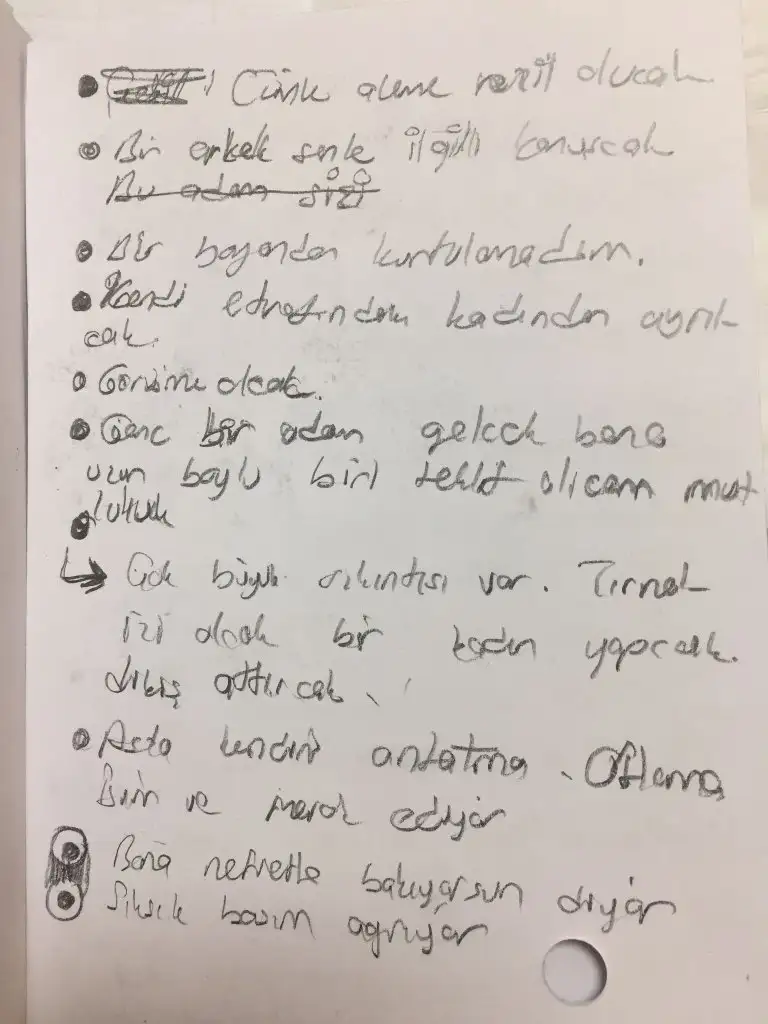 ● Cümle aleme rezil olucak
Bir erkek senle ilgili konuşcak
Bu adam sizi
● Bir bayandan kurtulamadım.
● Kendi etrafından kadından ayrıl-
cak.
Görüşme olcak.
● Genc bir adam gelcek bana
uzun boylu biri teklif alıcam mut
luluk
↳ Çok büyük sıkıntısı var. Tırnak
izi olcak bir kadın yapcak.
dikiş attırcak
Asla kendini anlatma. Oflama
ve merak ediyor
Bana nefretle bakıyorsun diyor
Sık sık başım agrıyor